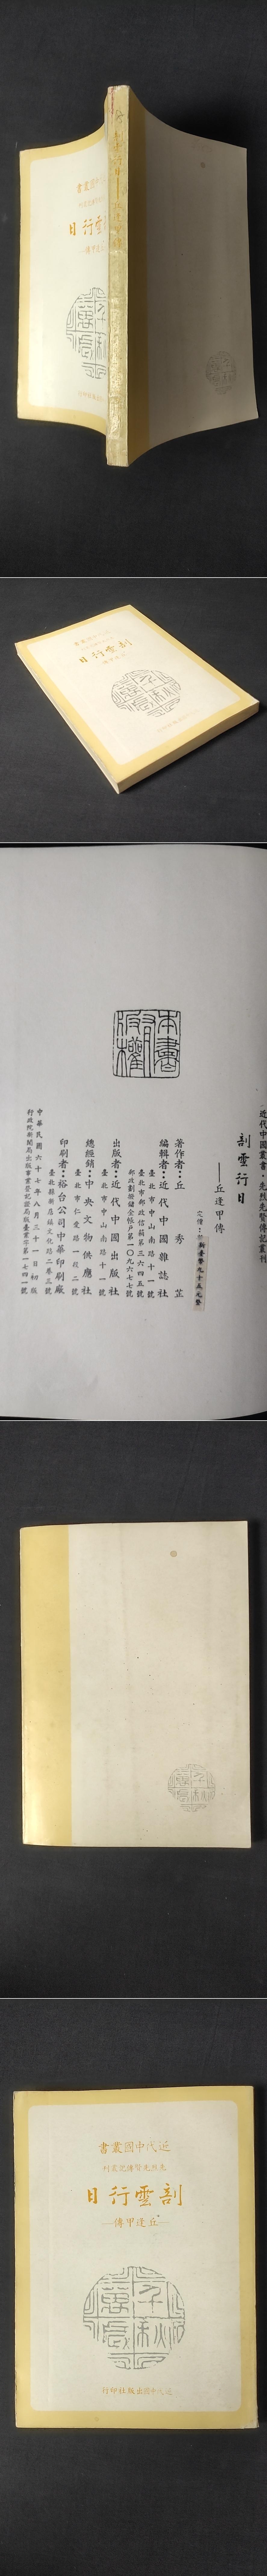 剖雲行日
丘逢甲傳
剖雲行日
近代中國叢書・先烈先賢傳記叢刊
剖雲行日
——丘逢甲傳
定價：新臺幣九十五元整
本書有版權
著作者：丘秀芷
編輯者：近代中國雜誌社
臺北市中山南路十一號
臺北市郵政信箱第三六四五號
郵政劃撥儲金帳戶第一〇九六七七號
出版者：近代中國出版社
臺北市中山南路十一號
總經銷：中央文物供應社
臺北市仁愛路一段二號
印刷者：裕台公司中華印刷廠
臺北縣新店鎮文化路二巷三號
中華民國六十七年八月三十一日初版
行政院新聞局出版事業登記證局版臺業字第一七四一號
近代中國叢書
先烈先賢傳記叢刊
剖雲行日
—丘逢甲傳—
千秋萬歲
近代中國出版社印行